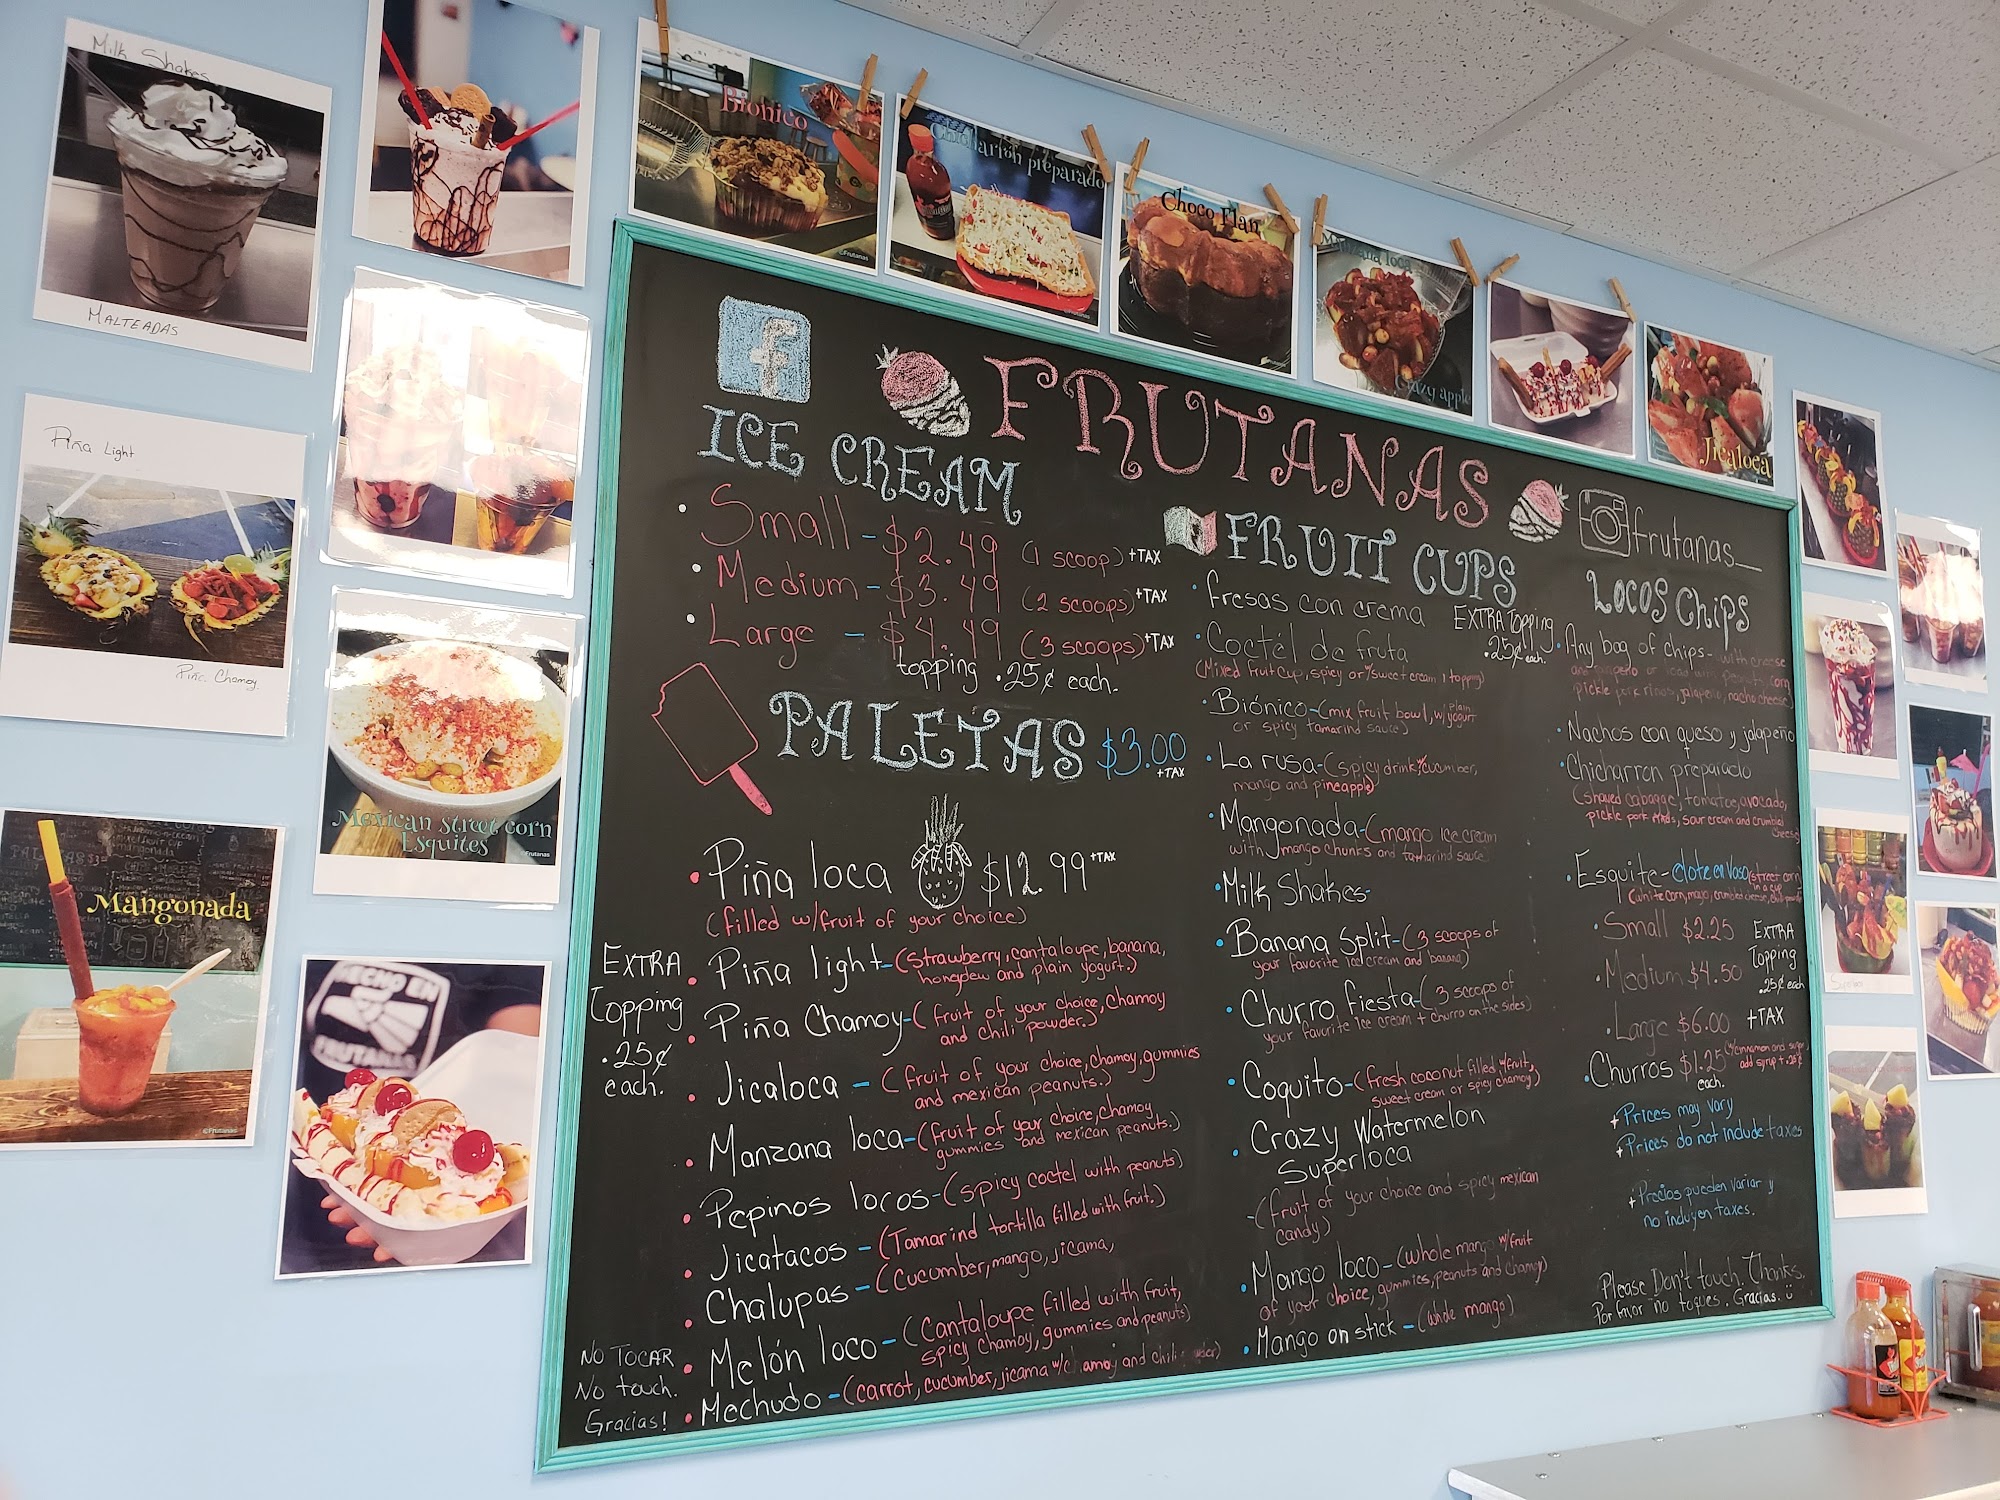 Milk Shakes
MALTEADAS
Piña Light
Piña Chamoy
Mangonada
Mexican street corn
Esquites
©Frutanas
HECHO EN
FRUTANAS
Bionico
©Frutanas
Chicharrón preparado
Choco Flan
Manzana loca
Crazy apple
Jicaloca
FRUTANAS
f
ICE CREAM
• Small - $2.49 (1 scoop) +TAX
• Medium - $3.49 (2 scoops) +TAX
• Large - $4.49 (3 scoops) +TAX
topping .25¢ each.
PALETAS $3.00
+TAX
• Piña loca $12.99 +TAX
(filled w/fruit of your choice)
EXTRA
Topping
.25¢
each.
• Piña light - (strawberry, cantaloupe, banana,
honeydew and plain yogurt.)
• Piña Chamoy - (fruit of your choice, chamoy
and chili powder.)
• Jicaloca - (fruit of your choice, chamoy, gummies
and mexican peanuts.)
• Manzana loca - (fruit of your choire, chamoy
gummies and mexican peanuts.)
• Pepinos locos - (spicy coctel with peanuts)
• Jicatacos - (Tamarind tortilla filled with fruit.)
• Chalupas - (cucumber, mango, jicama,
• Melón loco - (Cantaloupe filled with fruit,
spicy chamoy, gummies and peanuts)
• Mechudo - (carrot, cucumber, jicama w/chamoy and chili powder)
NO TOCAR
No touch.
Gracias!
FRUIT CUPS
• fresas con crema
EXTRA topping
.25¢ each.
• Coctél de fruta
(Mixed fruit cup, spicy or/sweet cream & topping)
• Biónico - (mix fruit bowl, w/plain yogurt
or spicy tamarind sauce)
• La rusa - (spicy drink w/cucumber,
mango and pineapple)
• Mangonada - (mango ice cream
with mango chunks and tamarind sauce
• Milk Shakes -
• Banana Split - (3 scoops of
your favorite ice cream and banana)
• Churro fiesta - (3 scoops of
your favorite ice cream + churro on the sides)
• Coquito - (fresh coconut filled w/fruit,
sweet cream or spicy chamoy)
• Crazy Watermelon
Superloca
- (fruit of your choice and spicy mexican
candy)
• Mango loco - (whole mango w/fruit
of your choice, gummies, peanuts and chamoy)
• Mango on stick - (whole mango)
frutanas_
LOCOS CHIPS
• Any bag of chips - with cheese
peanuts, corn
pickle pork rinds, jalapeño, nacho cheese)
• Nachos con queso y jalapeño
• Chicharron preparado
(shaved cabagge, tomatoe, avocado,
pickle pork rinds, sour cream and crumbled
cheese)
• Esquite - elote en vaso (street corn
in a cup
(white corn, mayo, crumbled cheese, chili powder
• Small $2.25
• Medium $4.50
• Large $6.00
EXTRA
Topping
.25¢ each
+TAX
• Churros $1.25
each.
w/cinnamon and sugar
add syrup + .25¢
+ Prices may vary
+ Prices do not include taxes
+ Precios pueden variar y
no incluyen taxes.
Please Don't touch. Thanks.
Por favor no toques. Gracias.